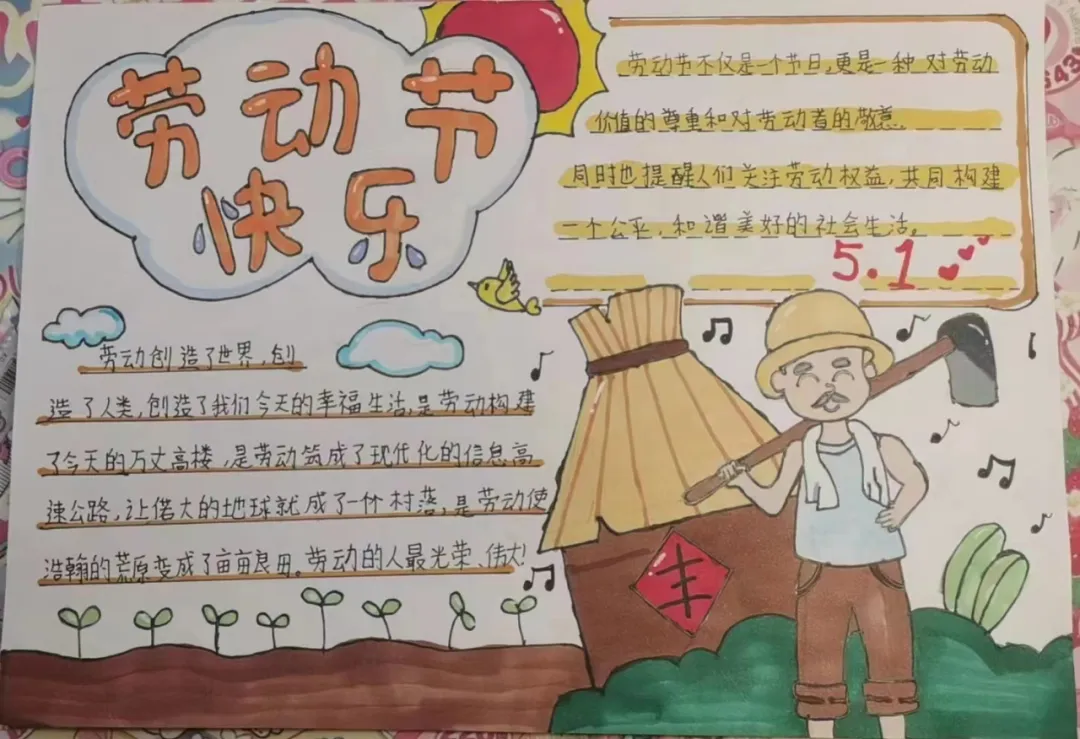 劳动节
快乐
劳动节不仅是一个节日,更是一种对劳动
价值的尊重和对劳动者的敬意。
同时也提醒人们关注劳动权益,共同构建
一个公平,和谐美好的社会生活。
5.1
劳动创造了世界,创
造了人类,创造了我们今天的幸福生活,是劳动构建
了今天的万丈高楼,是劳动筑成了现代化的信息高
速公路,让偌大的地球就成了一个村落,是劳动使
浩翰的荒原变成了亩亩良田。劳动的人最光荣、伟大!
丰